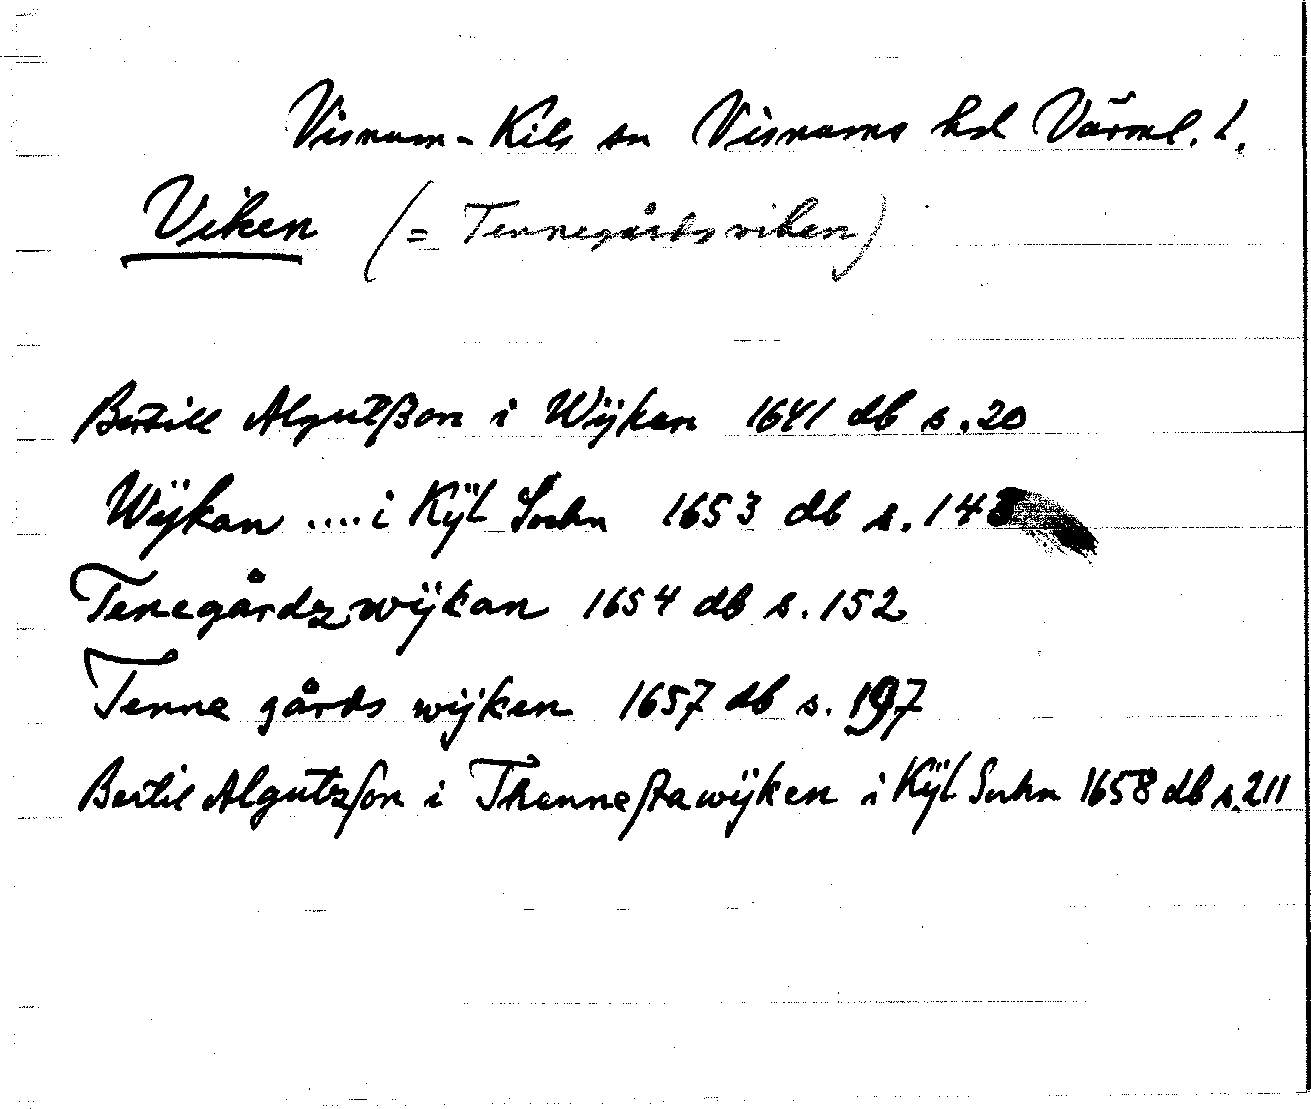 Visnum-Kils sn Visnums hd Värml. l.
Viken (= Tennegårdsviken)
Bertill Algutßon i Wÿken 1641 db s. 20
Wÿkan .... i Kÿl Sochn 1653 db s. 143
Tenegårdz wÿkan 1654 db s. 152
Tenne gårds wÿken 1657 db s. 197
Bertil Algutzson i Thennestawÿken i Kÿl Sochn 1658 db s. 211